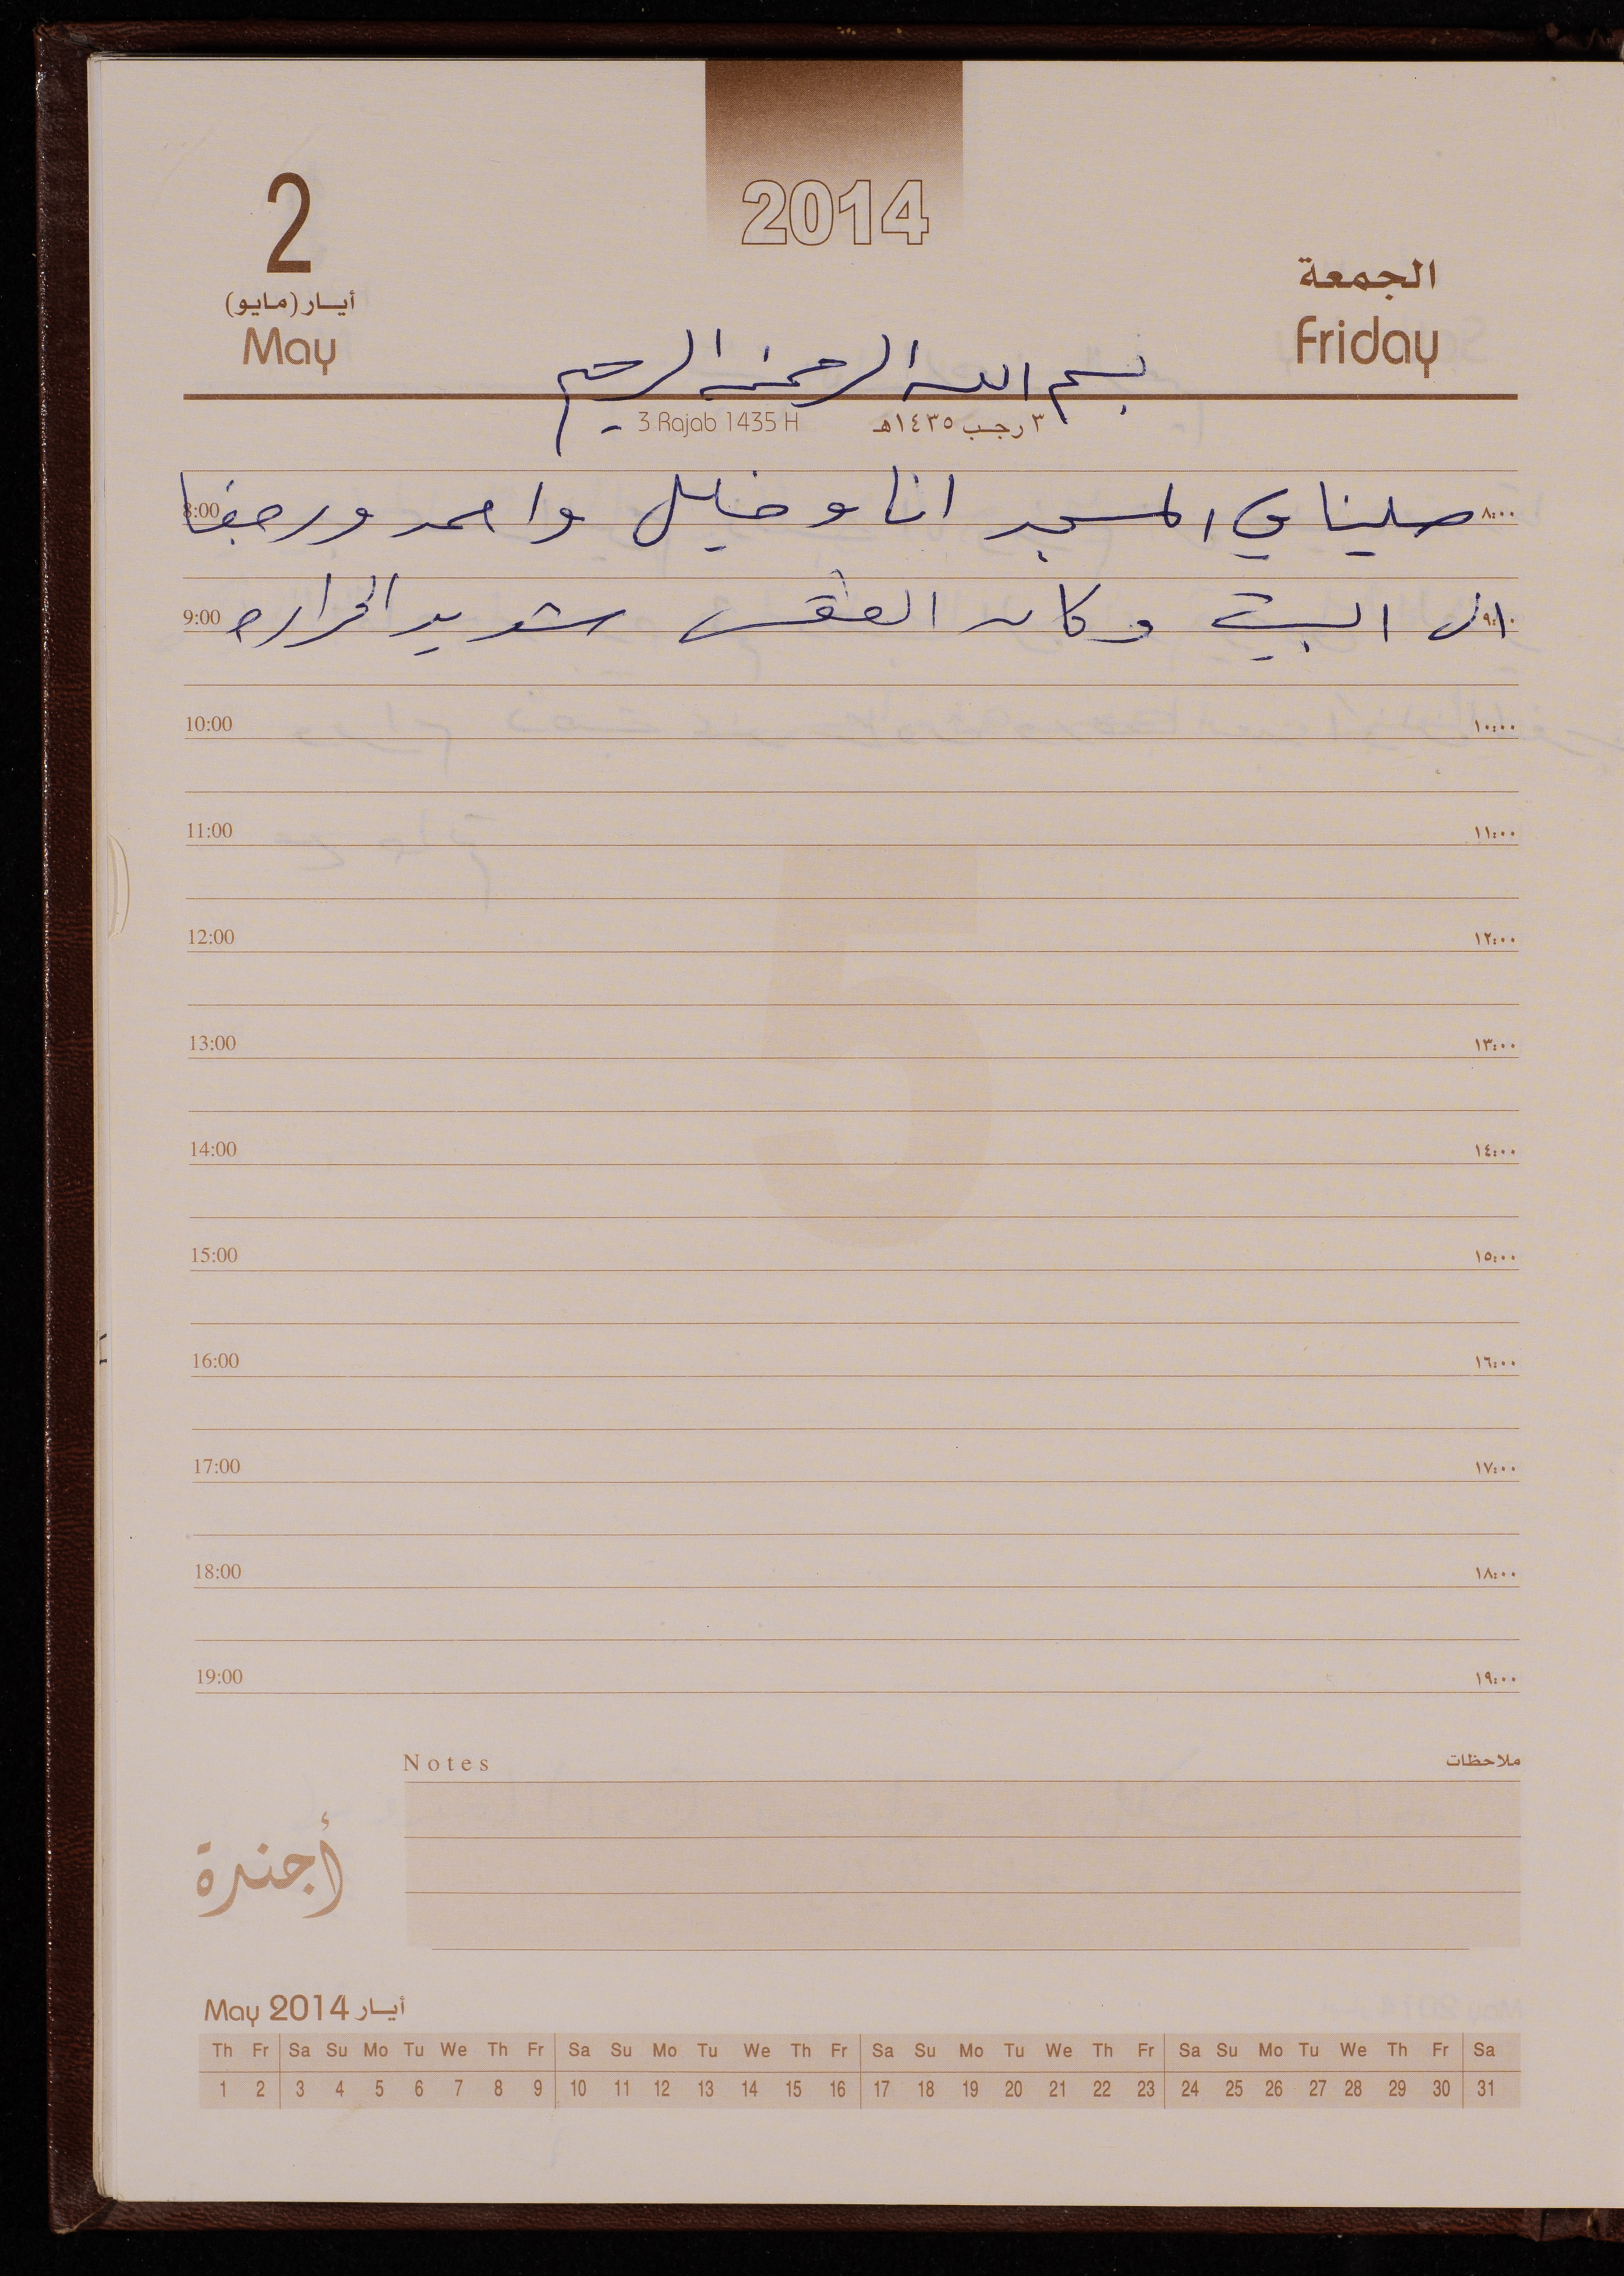 2014
2
أيار (مايو)
May
الجمعة
Friday
بسم الله الرحمن الرحيم
3 Rajab 1435 H ٣ رجب ١٤٣٥هـ
8:00 صلينا في المسجد انا و خليل واحمد ورجعنا ٨:٠٠
9:00 الى البيت وكان الطقس شديد الحراره ٩:٠٠
10:00 ١٠:٠٠
11:00 ١١:٠٠
12:00 ١٢:٠٠
5
13:00 ١٣:٠٠
14:00 ١٤:٠٠
15:00 ١٥:٠٠
16:00 ١٦:٠٠
17:00 ١٧:٠٠
18:00 ١٨:٠٠
19:00 ١٩:٠٠
Notes ملاحظات
أجندة
May 2014 أيار
Th Fr Sa Su Mo Tu We Th Fr Sa Su Mo Tu We Th Fr Sa Su Mo Tu We Th Fr Sa Su Mo Tu We Th Fr Sa
1 2 3 4 5 6 7 8 9 10 11 12 13 14 15 16 17 18 19 20 21 22 23 24 25 26 27 28 29 30 31